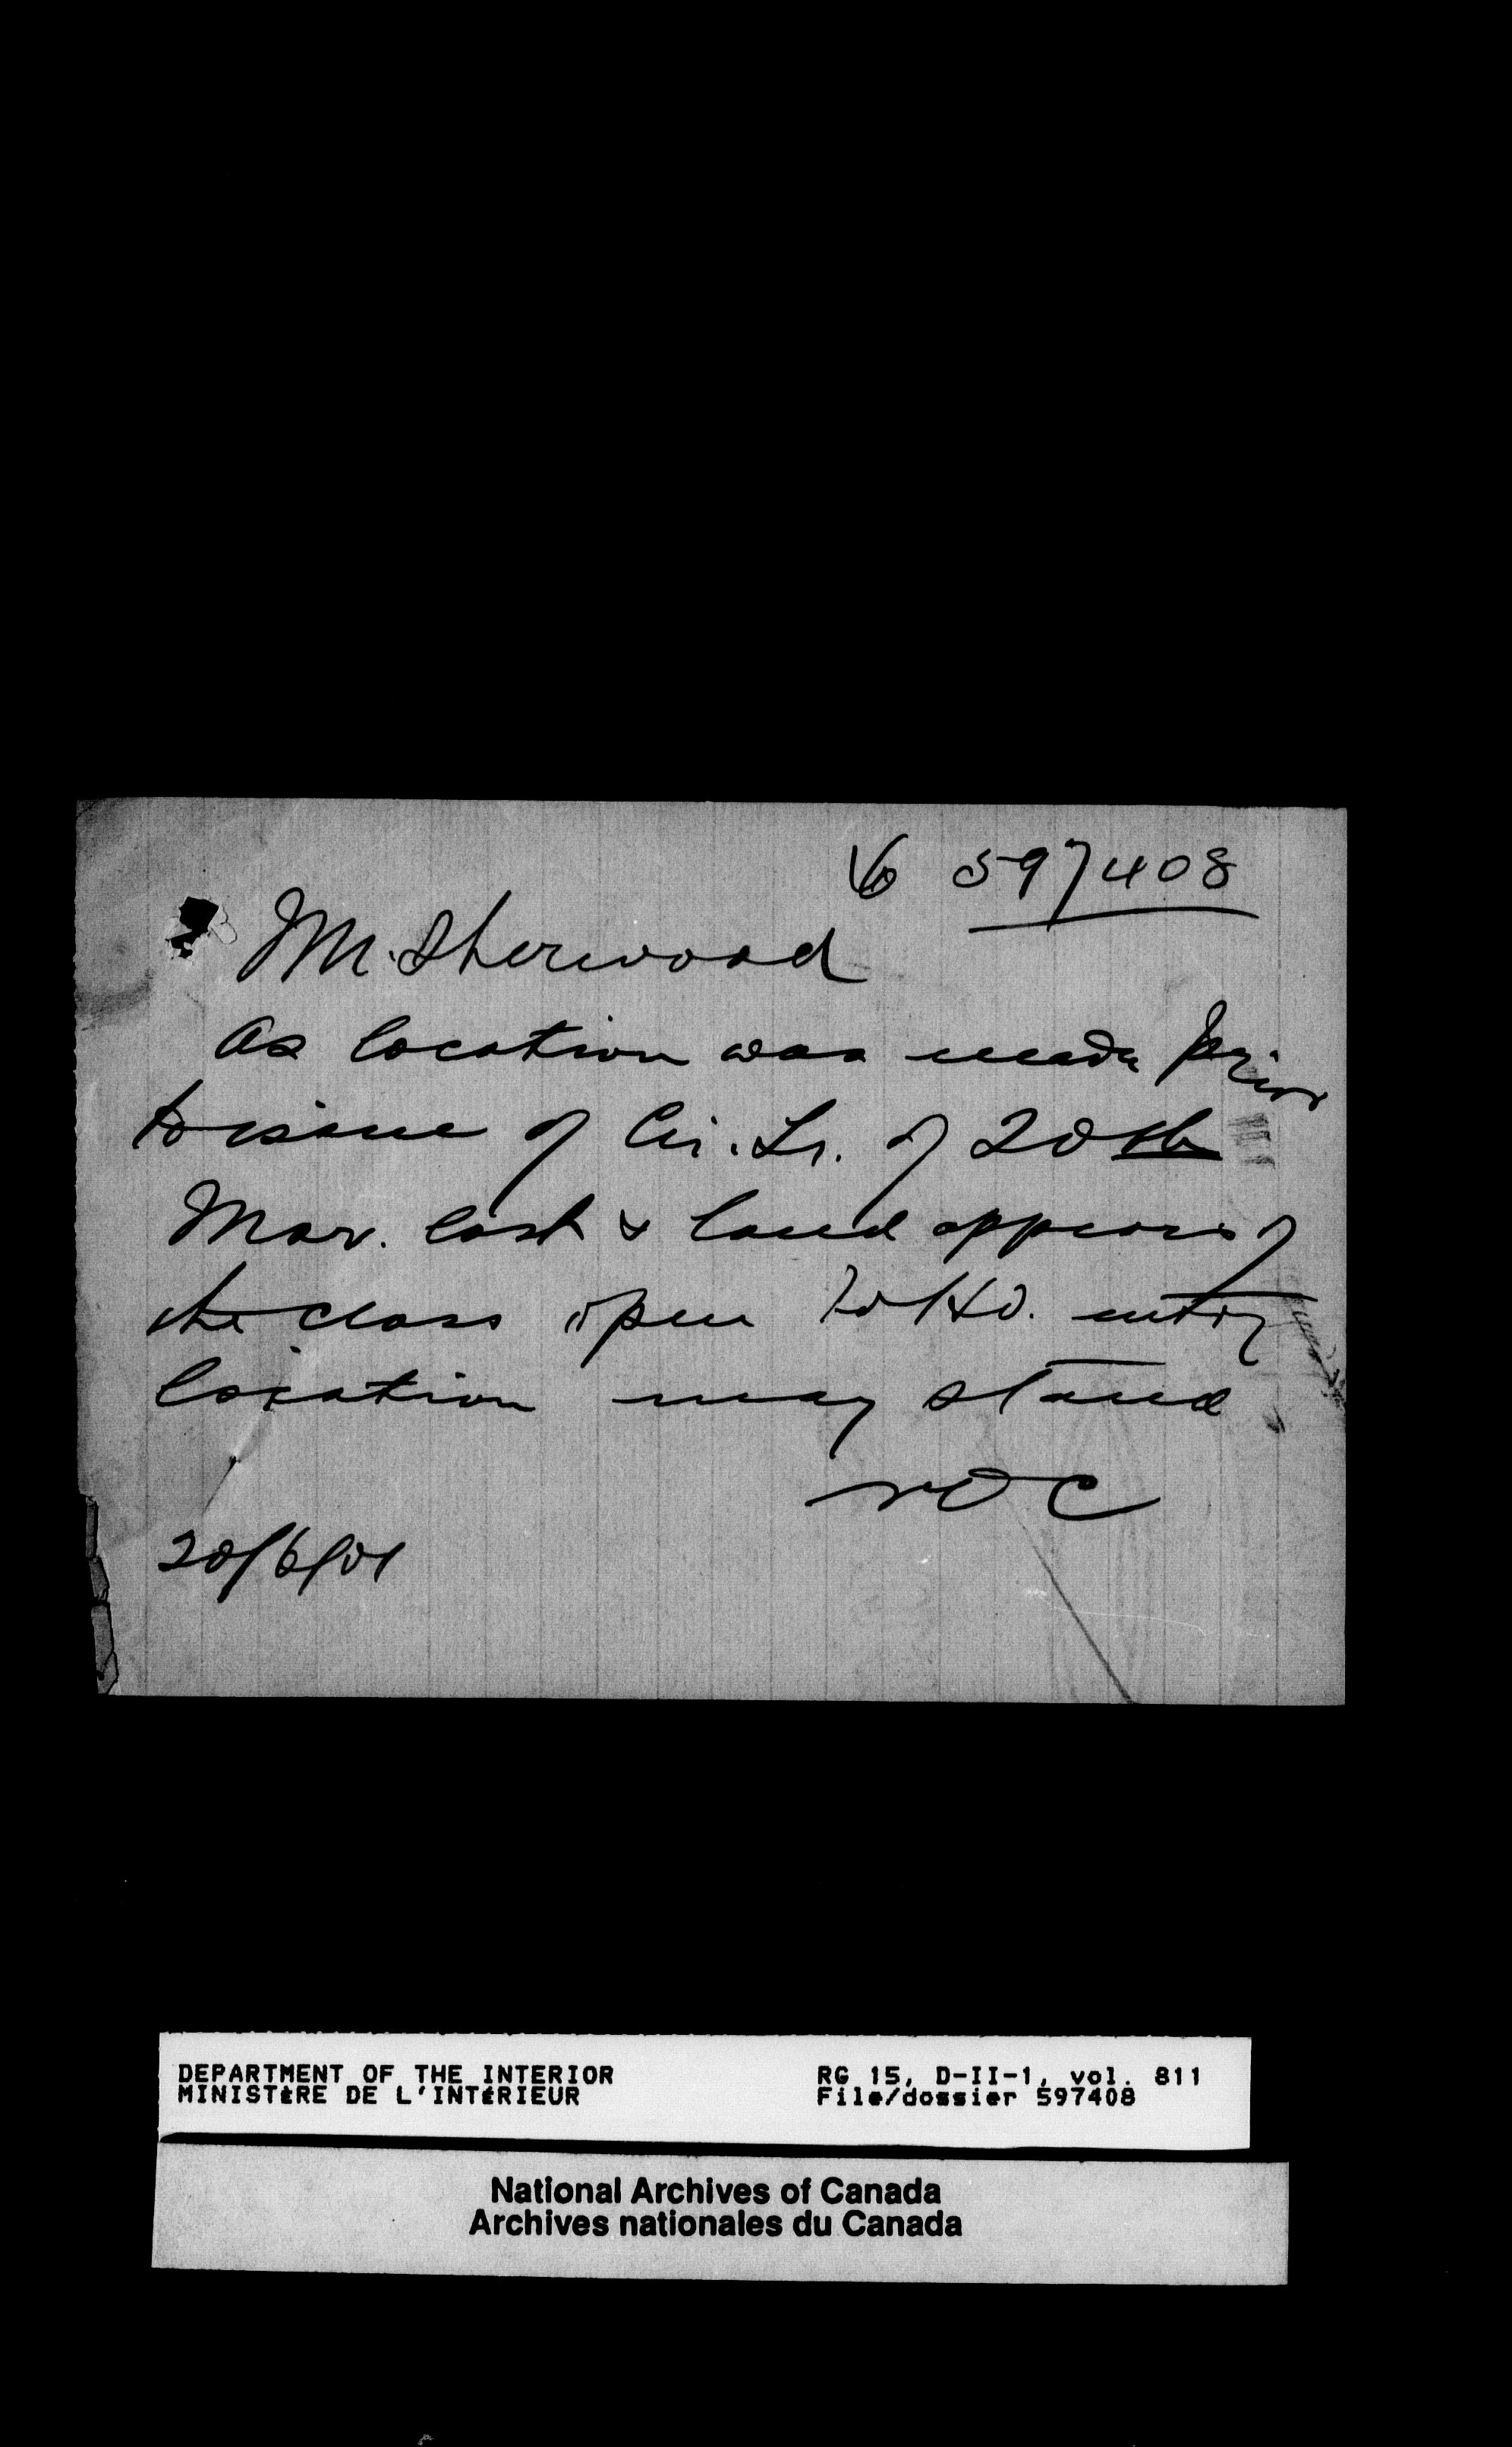 597408
Mr. Sherwood
As location was made prior
to issue of Cir. Lr. of 20th
Mar. last & land appears of
the class open to HD. entry
location may stand
NOC
20/6/01
DEPARTMENT OF THE INTERIOR RG 15, D-II-1, vol. 811
MINISTÈRE DE L'INTÉRIEUR File/dossier 597408
National Archives of Canada
Archives nationales du Canada